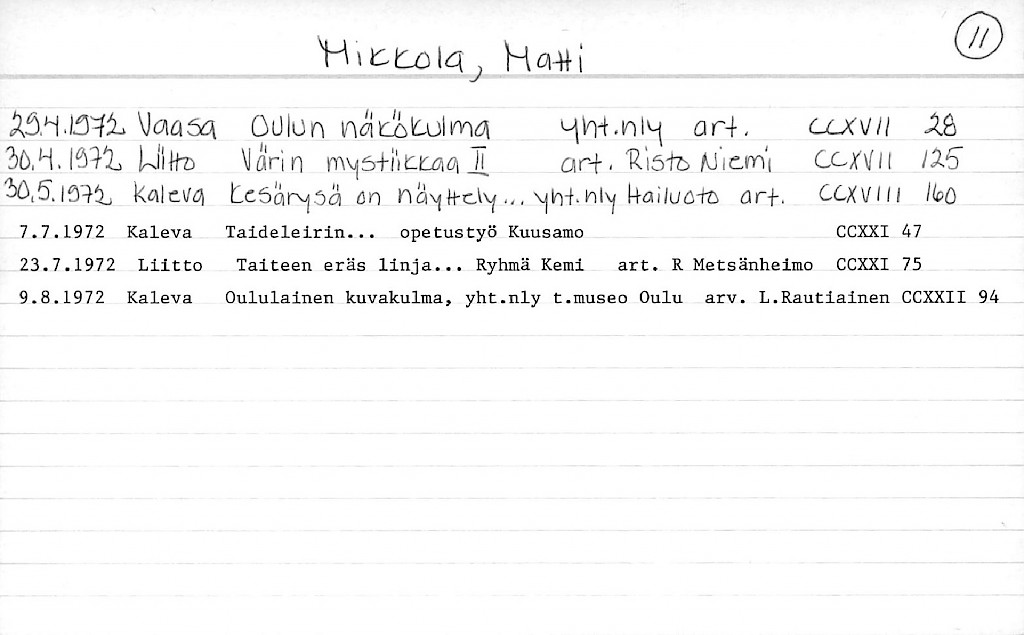 11
Mikkola, Matti
29.4.1972 Vaasa Oulun näkökulma yht.nly art. CCXVII 28
30.4.1972 Liitto Värin mystiikkaa II art. Risto Niemi CCXVII 125
30.5.1972 Kaleva Kesärysä on näyttely... yht.nly Hailuoto art. CCXVIII 160
7.7.1972 Kaleva Taideleirin... opetustyö Kuusamo CCXXI 47
23.7.1972 Liitto Taiteen eräs linja... Ryhmä Kemi art. R Metsänheimo CCXXI 75
9.8.1972 Kaleva Oululainen kuvakulma, yht.nly t.museo Oulu arv. L.Rautiainen CCXXII 94